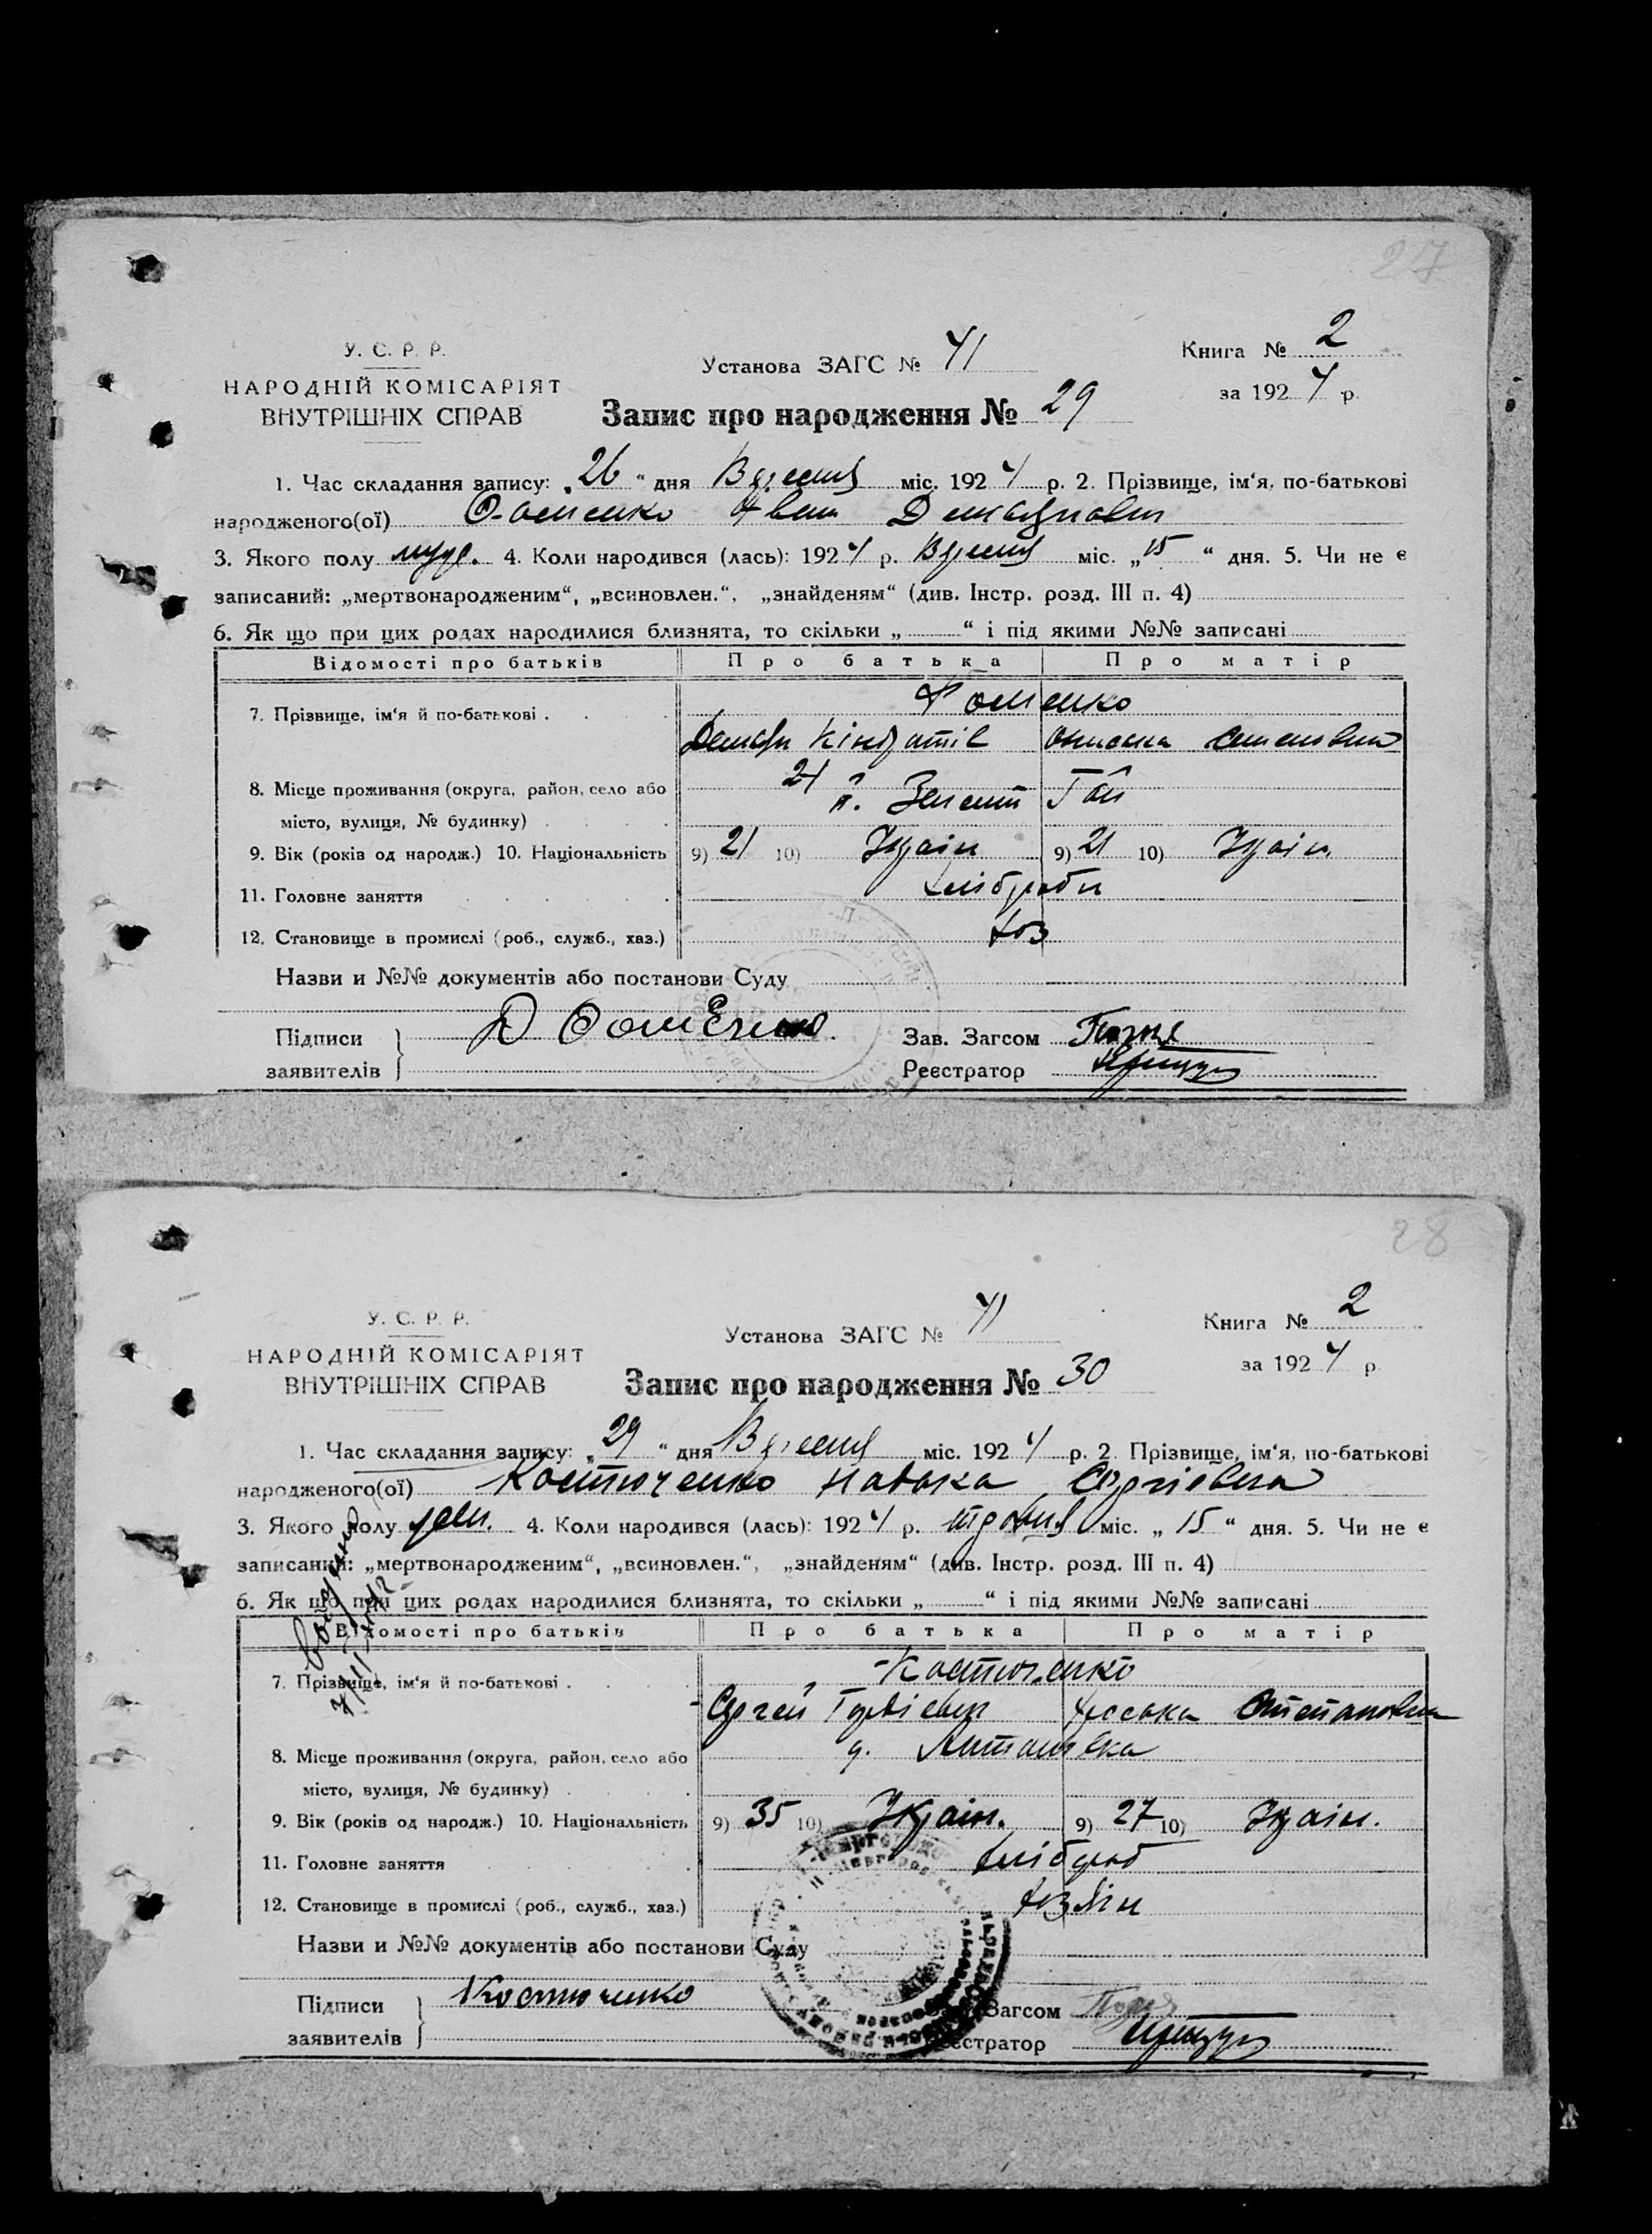 27
У. С. Р. Р.
НАРОДНІЙ КОМІСАРІЯТ
ВНУТРІШНІХ СПРАВ
Установа ЗАГС № 41
Книга № 2
за 1924 р.
Запис про народження № 29
1. Час складання запису: „26“ дня Вересня міс. 1924 р. 2. Прізвище, ім‘я, по-батькові
народженого(ої) Фоменко Іван
3. Якого полу муж. 4. Коли народився (лась): 1924 р. Вересня міс. „15“ дня. 5. Чи не є
записаний: „мертвонародженим“, „всиновлен.“, „знайденям“ (див. Інстр. розд. III п. 4)
6. Як що при цих родах народилися близнята, то скільки „ “ і під якими №№ записані
Відомості про батьків Про батька Про матір
7. Прізвище, ім‘я й по-батькові . Фоменко
8. Місце проживання (округа, район, село або
місто, вулиця, № будинку) Гай
9. Вік (років од народж.) 10. Національність 9) 21 10) Украін 9) 21 10) Украін.
11. Головне заняття хлібробы
12. Становище в промислі (роб., служб., хаз.) хоз
Назви и №№ документів або постанови Суду
Підписи
заявителів
Д Фоменко
Зав. Загсом
Реєстратор
28
У. С. Р. Р.
НАРОДНІЙ КОМІСАРІЯТ
ВНУТРІШНІХ СПРАВ
Установа ЗАГС № 41
Книга № 2
за 1924 р.
Запис про народження № 30
1. Час складання запису: „29“ дня Вересня міс. 1924 р. 2. Прізвище, ім‘я, по-батькові
народженого(ої) Костюченко Сергіевна
3. Якого полу жен. 4. Коли народився (лась): 1924 р. міс. „15“ дня. 5. Чи не є
записаний: „мертвонародженим“, „всиновлен.“, „знайденям“ (див. Інстр. розд. III п. 4)
6. Як що при цих родах народилися близнята, то скільки „ “ і під якими №№ записані
Відомості про батьків Про батька Про матір
7. Прізвище, ім‘я й по-батькові . Костюченко
Сергей Степановна
8. Місце проживання (округа, район, село або
місто, вулиця, № будинку)
9. Вік (років од народж.) 10. Національність 9) 35 10) Украін. 9) 27 10) Украін.
11. Головне заняття хлібороб
12. Становище в промислі (роб., служб., хаз.)
Назви и №№ документів або постанови Суду
Підписи
заявителів
Костюченко
Зав. Загсом
Реєстратор